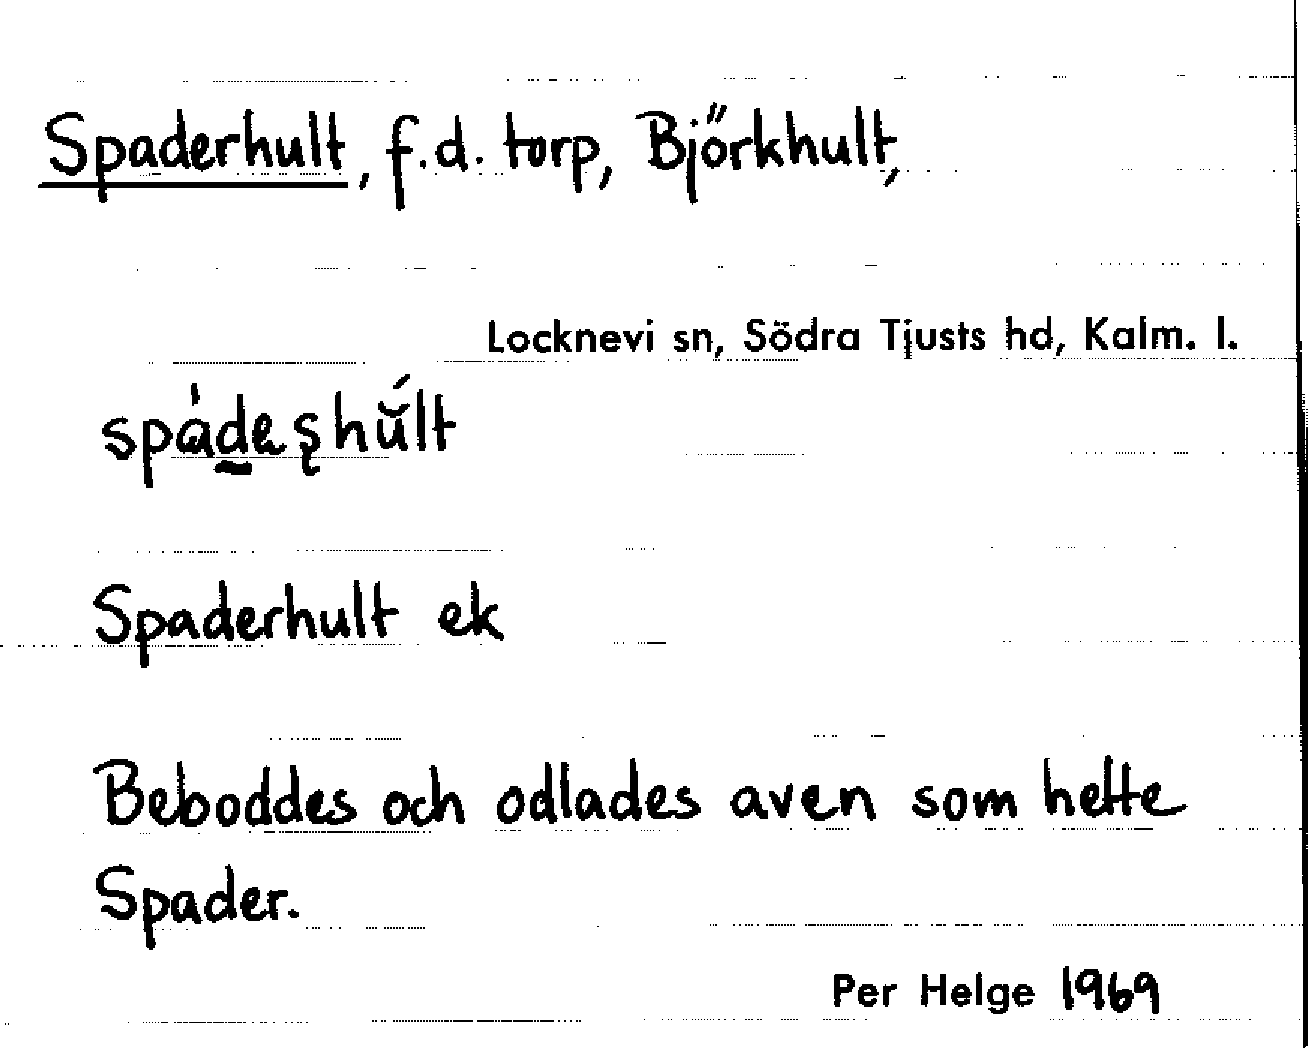 Spaderhult, f.d. torp, Björkhult,
Locknevi sn, Södra Tjusts hd, Kalm. l.
spádeʂhŭ́lt
Spaderhult ek
Beboddes och odlades aven som hette
Spader.
Per Helge 1969